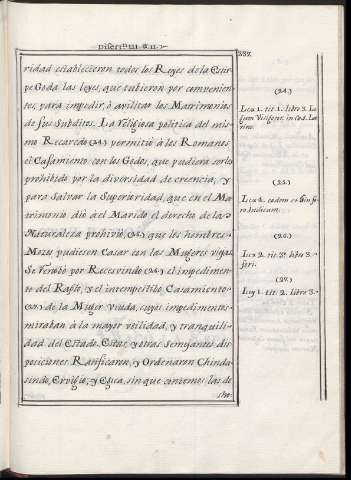 Disert.ⁿ III. §. II.
282.
ridad establecieron todos los Reyes de la Estir
pe Goda las leyes, que tubieron por convenien-
tes, para impedir, ó avilitar los Matrimonios
de sus Subditos. La Religiosa politica del mis-
mo Recaredo (24) permitió á los Romanos
el Casamiento con los Godos, que pudiera serles
prohibido por la diversidad de creencia, y
para Salvar la Superioridad, que en el Ma-
trimonio dió á el Marido el derecho de la
Naturaleza prohivió, (25) que los hombres
Mozos pudiesen Casar con las Mugeres viejas.
Se Renobó por Recesvindo (26) el impedimen-
to del Rapto, y el intempestibo Casamiento
(27) de la Muger Viuda, cuyos impedimentos
miraban á la mayor utilidad, y tranquili-
dad del Estado. Estas, y otras Semejantes dis
posiciones Ratificaron, y Ordenaron Chinda
sindo, Ervigio, y Egica, sin que contemos las de
(24.)
Lex 1. tit. 1. libro 3. Le
gum Visigotor. in Cod. La-
tino.
(25.)
Lex 4. eodem
(26.)
Lex 2. tit. 3. libro 3.
(27.)
Ley 1. tit. 2. libro 3.